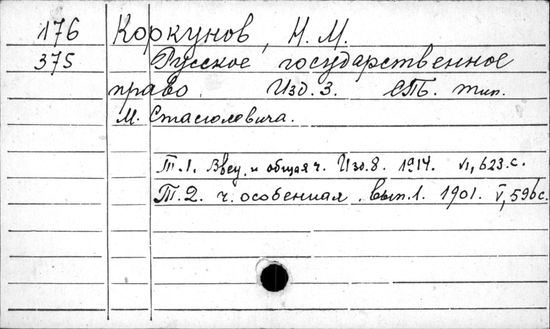 176 Коркунов, Н. М.
375 Русское государственное
право. Изд. 3. СПБ. тип.
М. Стасюлевича.
Т. 1. Введ. и общая ч. Изд. 8. 1914. VI, 623 с.
Т. 2. ч. особенная. вып. 1. 1901. V, 596 с.